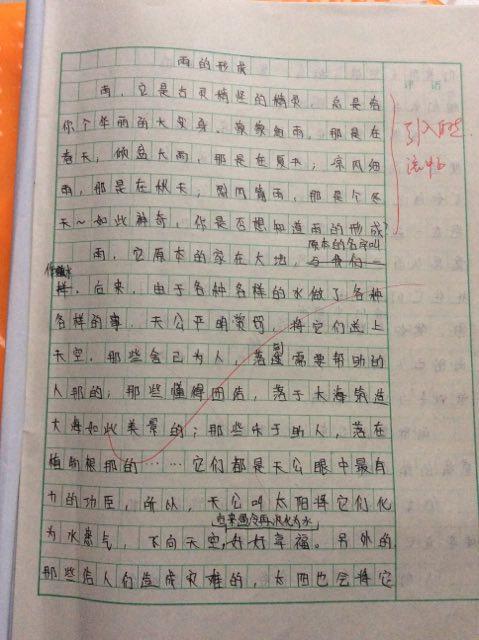 雨的形成
评语
雨，它是古灵精怪的精灵，总是给
你个华丽的大变身，蒙蒙细雨，那是在
春天；倾盆大雨，那是在夏天；凉风细
雨，那是在秋天；烈风寒雨，那是个冬
天～如此神奇，你是否想知道雨的形成？
引入自然
流畅
原本的名字叫
雨，它原本的家在大地，与我们一
样，后来，由于各种各样的水做了各种
各样的事，天公平明赏罚，将它们送上
天空，那些舍己为人，落到需要帮助的
人那的；那些懂得团结，落于大海筑造
大海如此美景的；那些乐于助人，落在
植物根那的……它们都是天公眼中最有
力的功臣，所以，天公叫太阳将它们化
后来遇冷再液化为水
为水蒸气，飞向天空，好好享福。另外的
那些给人们造成灾难的，太阳也会将它